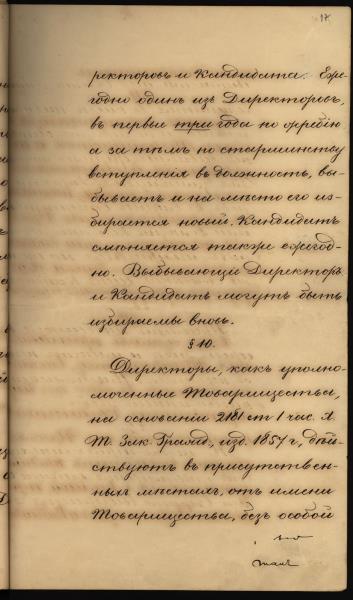 17.
ректоровъ и Кандидата. Еже-
годно одинъ изъ Директоровъ,
въ первые три года по жребію
а за тѣмъ по старшинству
вступленія въ должность, вы-
бываетъ и на мѣсто его из-
бирается новый. Кандидатъ
смѣняется также ежегод-
но. Выбывающіе Директоръ
и Кандидатъ могутъ быть
избираемы вновь.
§ 10.
Директоры, какъ уполно-
моченные Товарищества,
на основаніи 2181 ст 1 час. X
Т. Зак. Гражд., изд. 1857 г., дѣй-
ствуютъ въ присутствен-
ныхъ мѣстахъ, отъ имени
Товарищества, безъ особой